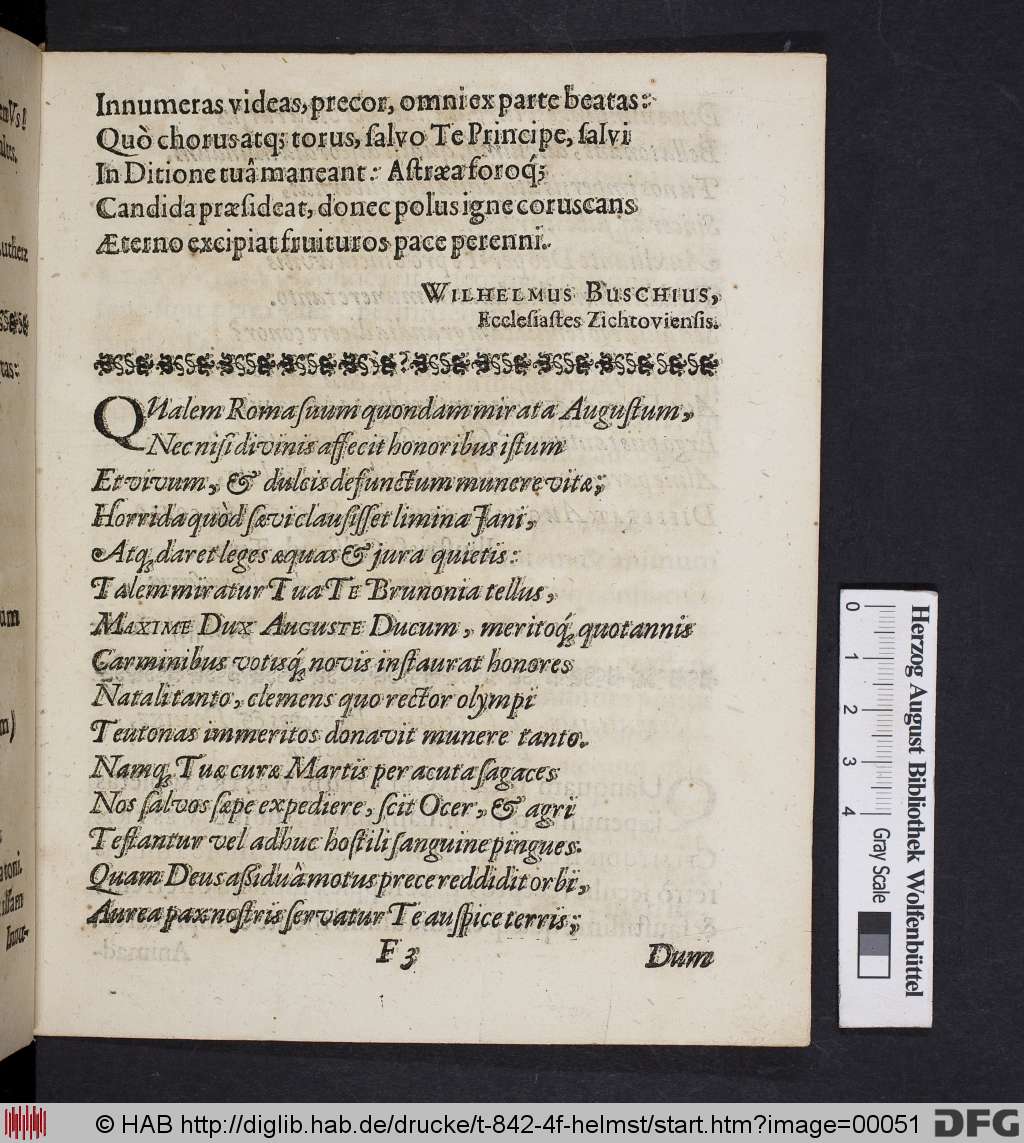 Innumeras videas, precor, omni ex parte beatas:
Quò chorus atq; torus, salvo Te Principe, salvi
In Ditione tuâ maneant: Astræa foroq́;
Candida præsideat, donec polus igne coruscans
Æterno excipiat fruituros pace perenni.
WILHELMUS BUSCHIUS,
Ecclesiastes Zichtoviensis.
QUalem Roma suum quondam mirata Augustum,
Nec nisi divinis affecit honoribus istum
Et vivum, & dulcis defunctum munere vitæ;
Horrida quòd sævi clausisset limina Jani,
Atq; daret leges æquas & jura quietis:
Talem miratur Tua TE Brunonia tellus,
MAXIME DUX AUGUSTE DUCUM, meritoq́; quotannis
Carminibus votisq́; novis instaurat honores
Natali tanto, clemens quo rector olympi
Teutonas immeritos donavit munere tanto.
Namq; Tuæ curæ Martis per acuta sagaces
Nos salvos sæpe expediere, scit Ocer, & agri
Testantur vel adhuc hostili sanguine pingues.
Quam Deus assiduâ motus prece reddidit orbi,
Aurea pax nostris servatur Te auspice terris;
F 3
Dum
0
1
2
3
4
Gray Scale
Herzog August Bibliothek Wolfenbüttel
© HAB http://diglib.hab.de/drucke/t-842-4f-helmst/start.htm?image=00051
DFG